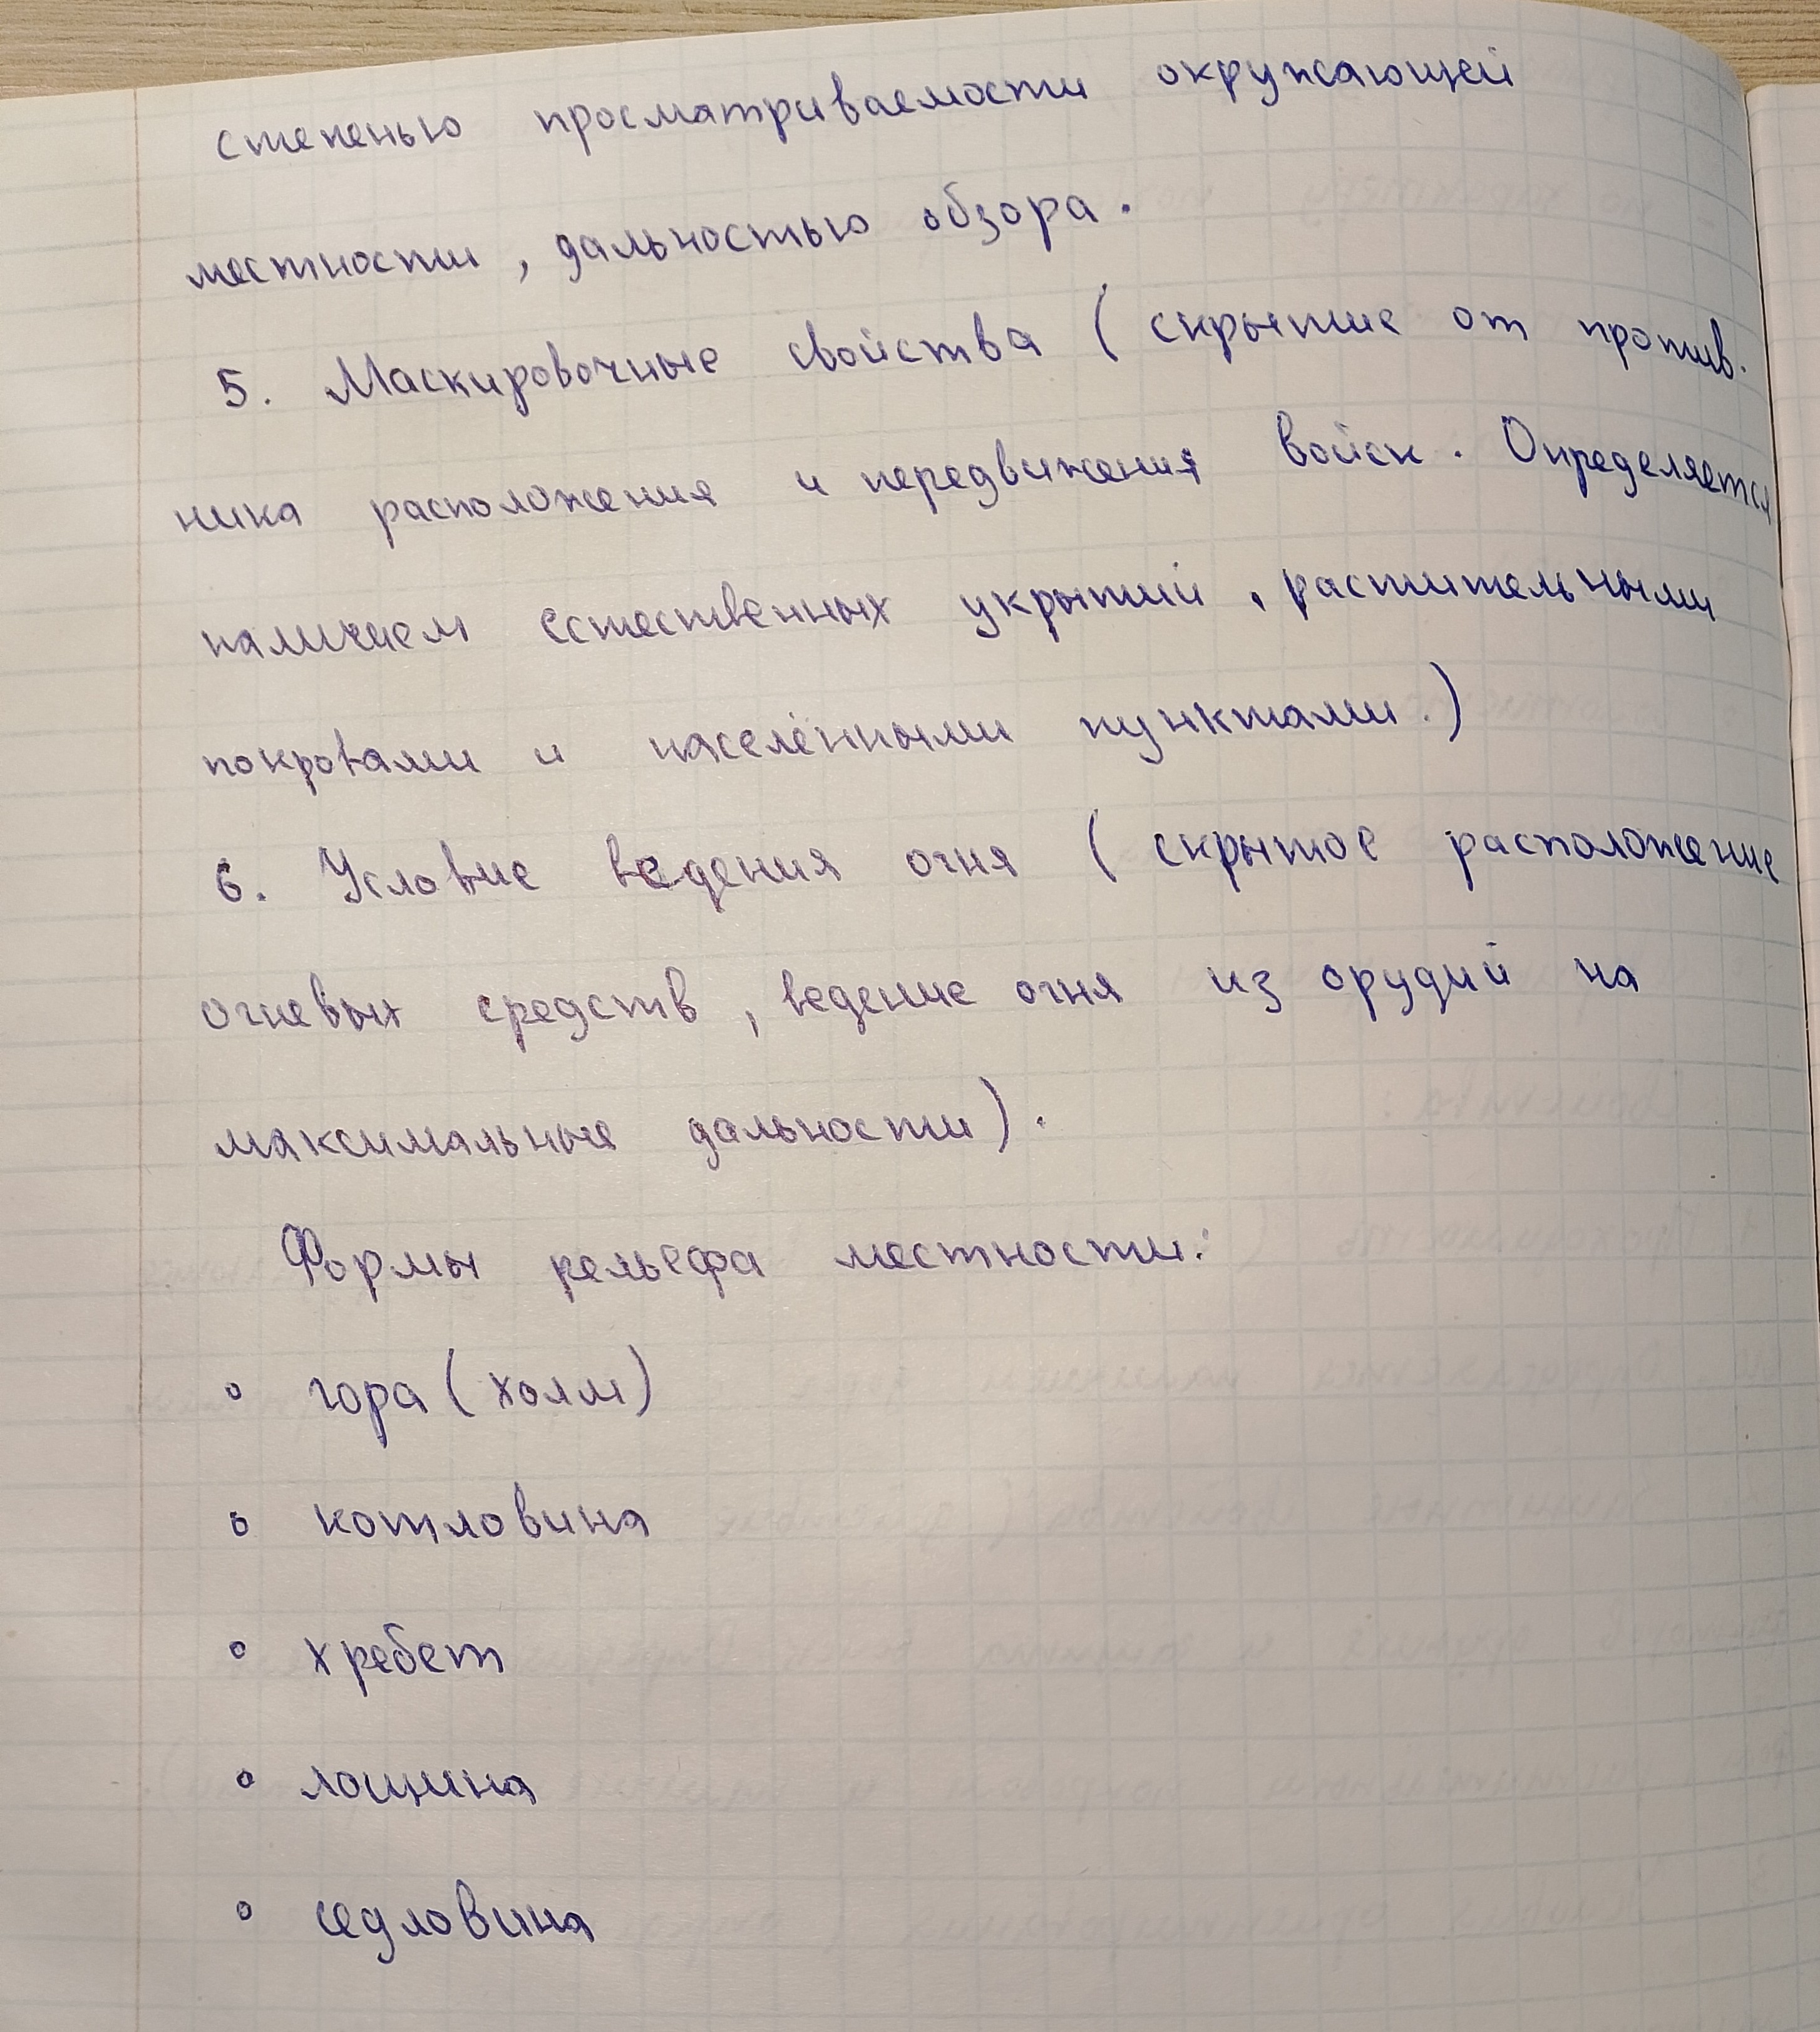 степенью просматриваемости окружающей
местности, дальностью обзора.
5. Маскировочные свойства (скрытие от против.
ника расположения и передвижения войск. Определяется
наличием естественных укрытий, растительными
покровами и населёнными пунктами.)
6. Условие ведения огня (скрытое расположение
огневых средств, ведение огня из орудий на
максимальные дальности).
Формы рельефа местности:
• гора (холм)
• котловина
• хребет
• лощина
• седловина